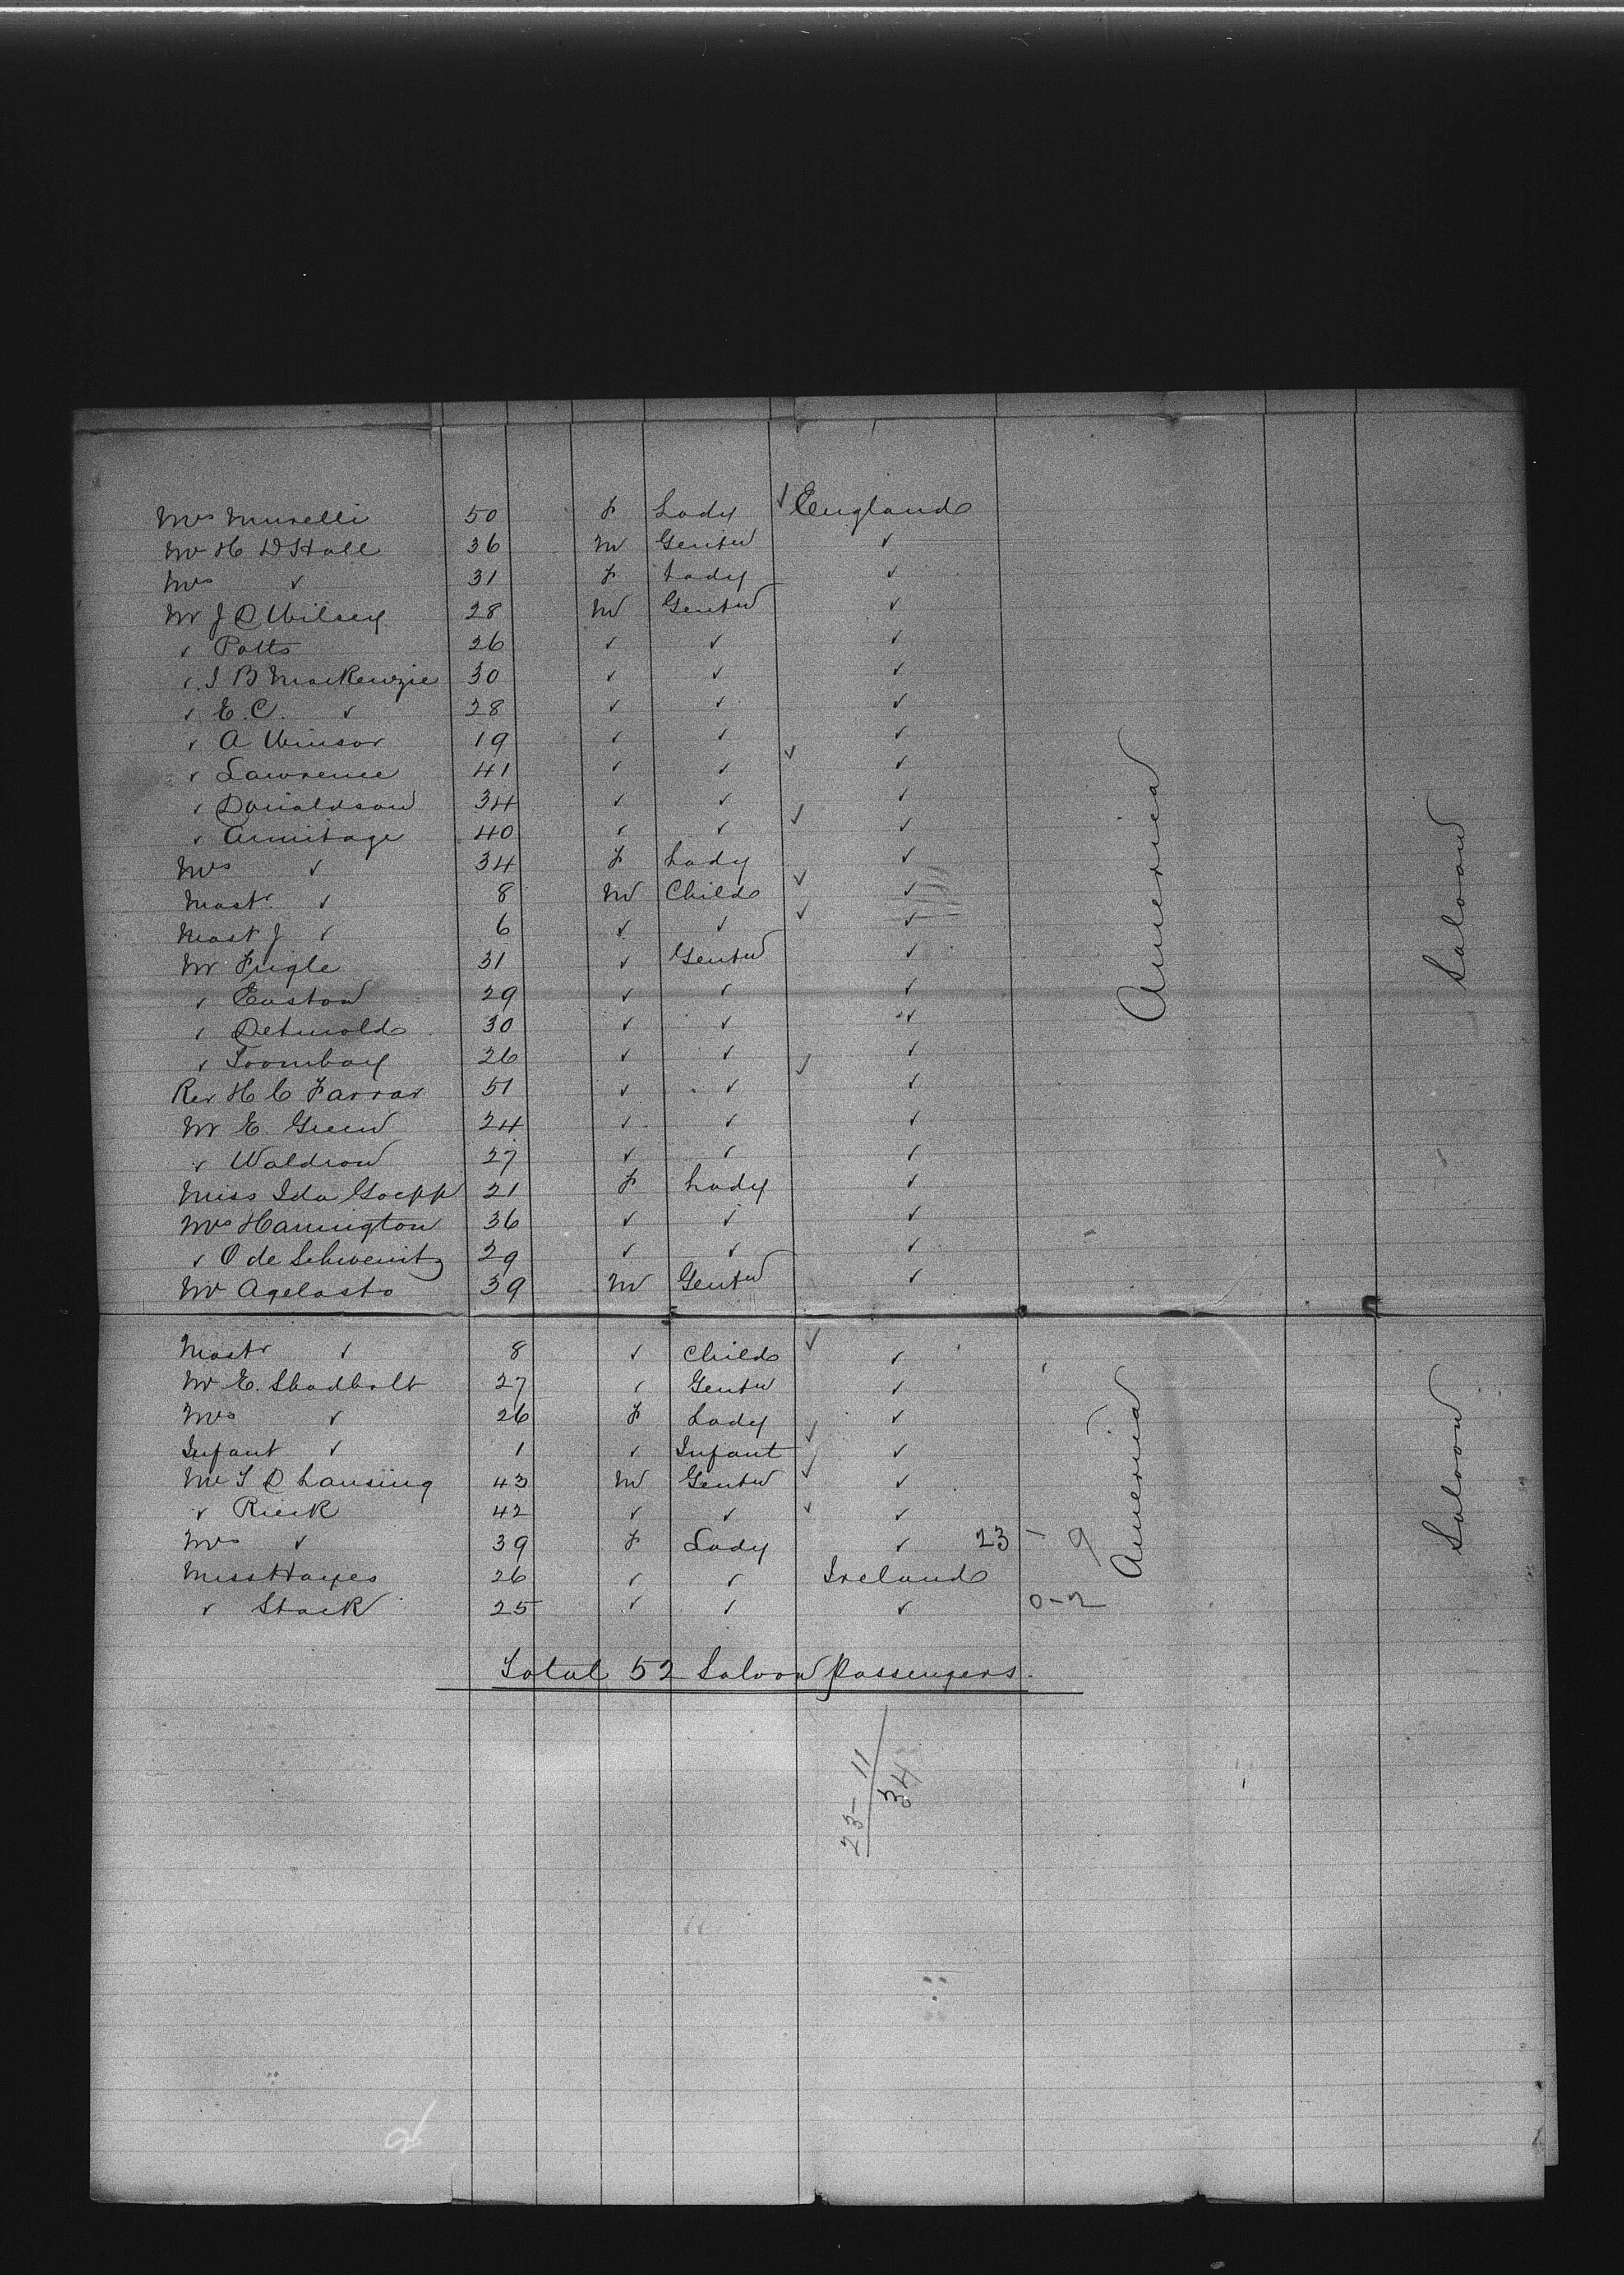 Mrs Murelli 50 F Lady √ England
Mr H D Hall 36 M Gentn √
Mrs √ 31 F Lady √
Mr J D Wilsey 28 M Gentn √
√ Potts 26 √ √ √
√ J B MacKenzie 30 √ √ √
√ E. C. √ 28 √ √ √
√ A Winsor 19 √ √ √
√ Lawrence 41 √ √ √ √
√ Donaldson 34 √ √ √
√ Armitage 40 √ √ √ √
Mrs √ 34 F Lady √
Mastr √ 8 M Child √ √
Mast J √ 6 √ √ √ √
Mr Fugle 31 √ Gentn √
√ Easton 29 √ √ √
√ Detmold 30 √ √ √
√ 26 √ √ √ √
Rev H C Farrar 51 √ √ √
Mr E. Green 24 √ √ √
√ Waldron 27 √ √ √
Miss Ida Goepp 21 F Lady √
Mrs Harrington 36 √ √ √
√ O de Schweinitz 29 √ √ √
Mr Agelasto 39 M Gentn √
America
Saloon
Mastr √ 8 √ Child √ √
Mr E. Shadbolt 27 √ Gentn √
Mrs √ 26 F Lady √
Infant √ 1 √ Infant √ √
Mr S D Lansing 43 M Gentn √ √
√ Rieck 42 √ √ √ √
Mrs √ 39 F Lady √ 23 - 9
Miss Hayes 26 √ √ Ireland
√ Stack 25 √ √ √ 0-2
America
Saloon
Total 52 Saloon Passengers.
23-11
34